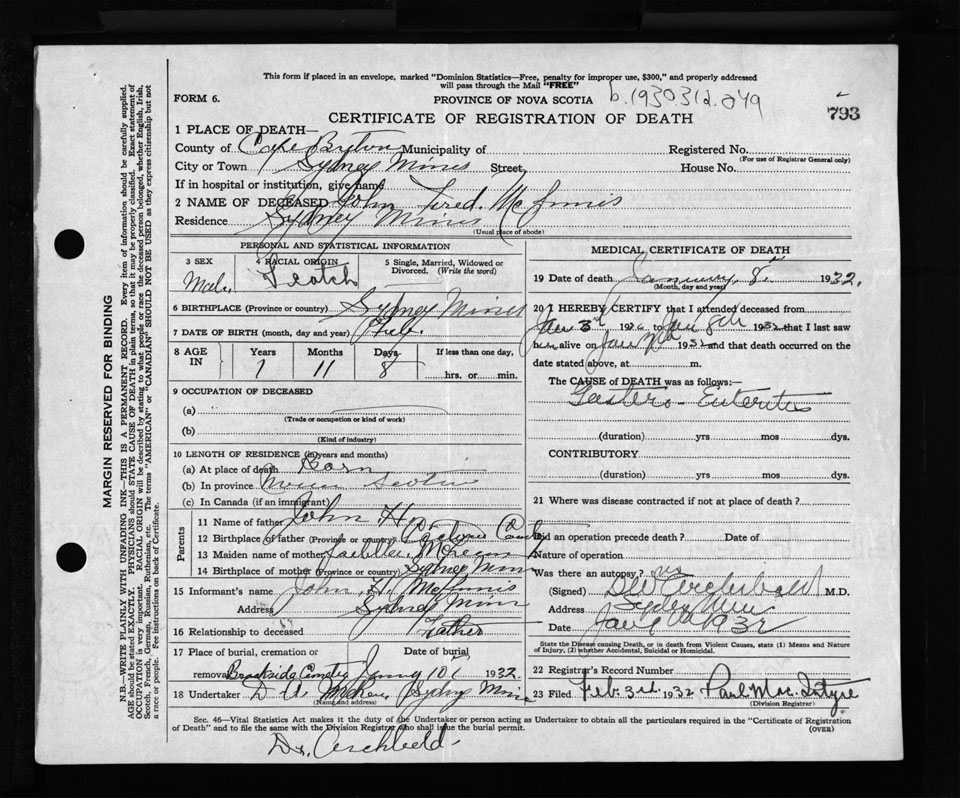 This form if placed in an envelope, marked "Dominion Statistics—Free, penalty for improper use, $300," and properly addressed
will pass through the Mail "FREE"
FORM 6. PROVINCE OF NOVA SCOTIA b.1930312049
CERTIFICATE OF REGISTRATION OF DEATH 793
1 PLACE OF DEATH—
County of Cape Breton Municipality of Registered No.
(For use of Registrar General only)
City or Town Sydney Mines Street House No.
If in hospital or institution, give name
2 NAME OF DECEASED John Fred. McInnis
Residence Sydney Mines
(Usual place of abode)
PERSONAL AND STATISTICAL INFORMATION
3 SEX Male 4 RACIAL ORIGIN Scotch 5 Single, Married, Widowed or Divorced. (Write the word)
6 BIRTHPLACE (Province or country) Sydney Mines
7 DATE OF BIRTH (month, day and year) Feb.
8 AGE IN Years Months Days If less than one day,
1 11 8 hrs. or min.
9 OCCUPATION OF DECEASED
(a)
(Trade or occupation or kind of work)
(b)
(Kind of industry)
10 LENGTH OF RESIDENCE (in years and months)
(a) At place of death Born
(b) In province Nova Scotia
(c) In Canada (if an immigrant)
Parents
11 Name of father John H
12 Birthplace of father (Province or country)
13 Maiden name of mother
14 Birthplace of mother (Province or country) Sydney Mines
15 Informant's name John H. McInnis
Address Sydney Mines
16 Relationship to deceased Father
17 Place of burial, cremation or removal Date of burial
Brookside Cemetery 10 1932
18 Undertaker Sydney Mines
(Name and address)
MEDICAL CERTIFICATE OF DEATH
19 Date of death January 8 1932.
(Month, day and year)
20 I HEREBY CERTIFY that I attended deceased from
Jan 3rd 193 to Jan 8th 1932 that I last saw
him alive on Jan 1932 and that death occurred on the
date stated above, at m.
The CAUSE of DEATH was as follows:—
Gastero-Enteritis
(duration) yrs mos dys.
CONTRIBUTORY
(duration) yrs mos dys.
21 Where was disease contracted if not at place of death?
Did an operation precede death? Date of
Nature of operation
Was there an autopsy?
(Signed) Archibald M.D.
Address Sydney Mines
Date Jan 1932
State the Disease causing Death, or in death from Violent Causes, state (1) Means and Nature of Injury, (2) whether Accidental, Suicidal or Homicidal.
22 Registrar's Record Number
23 Filed Feb. 3rd 1932 Paul MacIntyre
(Division Registrar)
Sec. 46—Vital Statistics Act makes it the duty of the Undertaker or person acting as Undertaker to obtain all the particulars required in the "Certificate of Registration
of Death" and to file the same with the Division Registrar who shall issue the burial permit. (OVER)
Dr. Archibald.
MARGIN RESERVED FOR BINDING
N.B.—WRITE PLAINLY WITH UNFADING INK—THIS IS A PERMANENT RECORD. Every item of information should be carefully supplied.
AGE should be stated EXACTLY. PHYSICIANS should STATE CAUSE OF DEATH in plain terms, so that it may be properly classified. Exact statement of
OCCUPATION is very important. RACIAL ORIGIN will be described by stating to what people or race the deceased person belonged, whether English, Irish,
Scotch, French, German, Russian, Ruthenian, etc. The terms "AMERICAN" or "CANADIAN" SHOULD NOT BE USED as they express citizenship but not
a race or people. Fee instructions on back of Certificate.